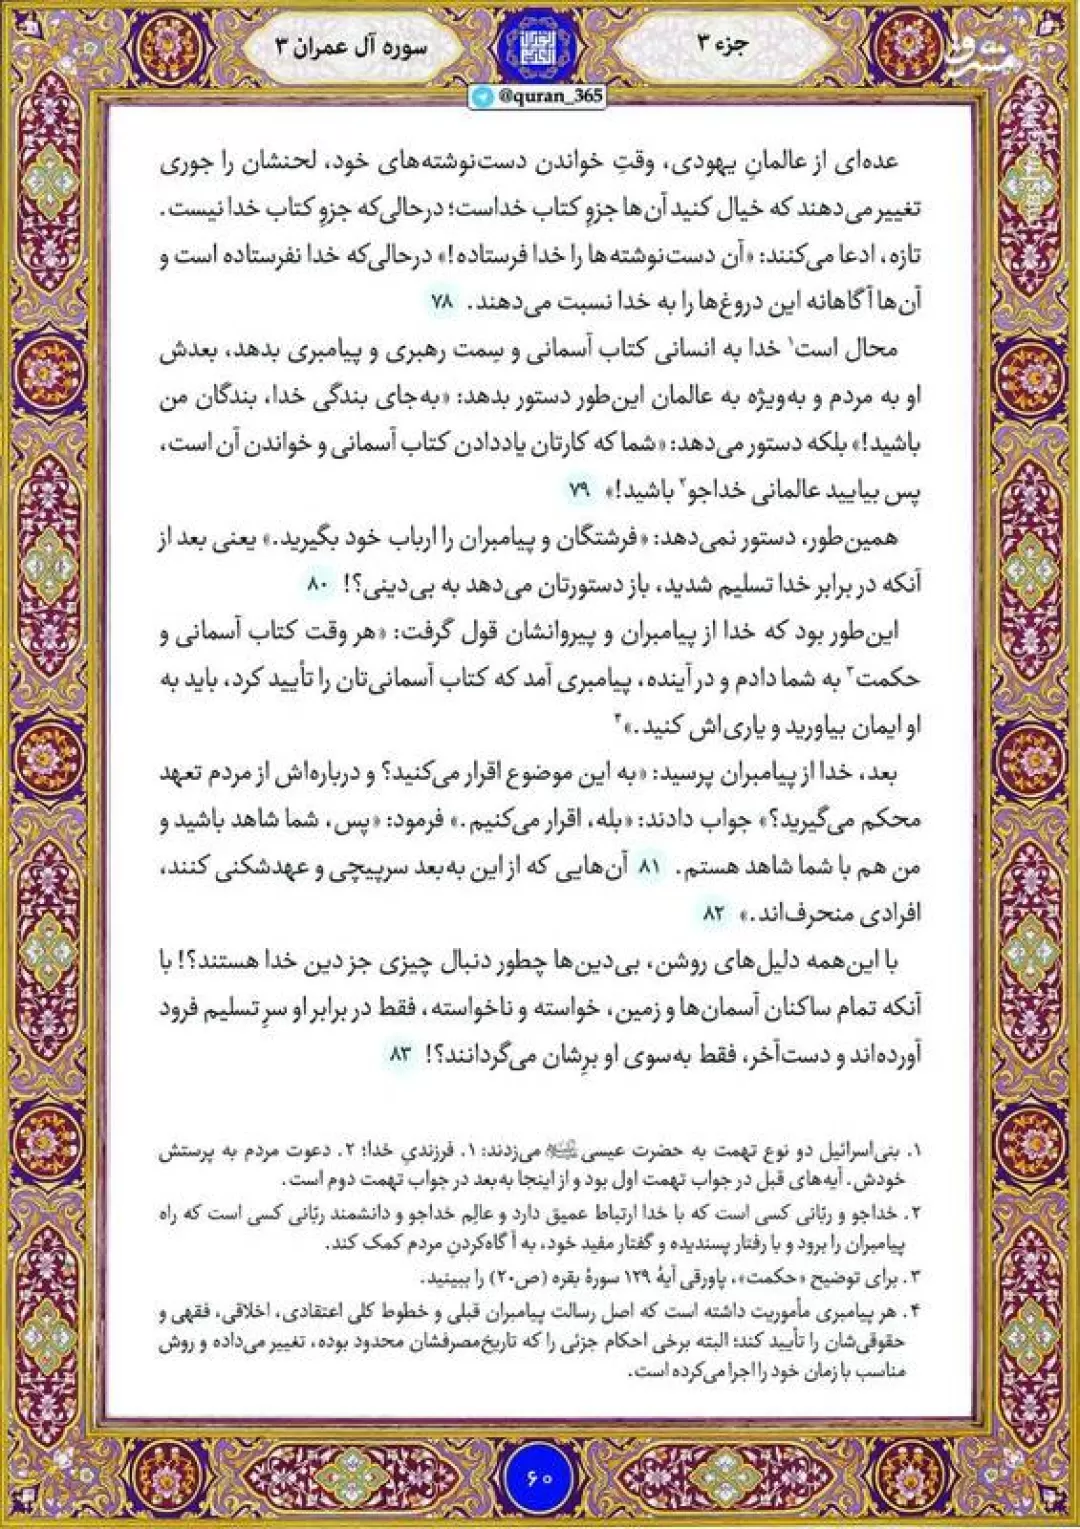 جزء ۳
سوره آل عمران ۳
مشرق
@quran_365
عده‌ای از عالمانِ یهودی، وقتِ خواندن دست‌نوشته‌های خود، لحنشان را جوری
تغییر می‌دهند که خیال کنید آن‌ها جزوِ کتاب خداست؛ درحالی‌که جزوِ کتاب خدا نیست.
تازه، ادعا می‌کنند: «آن دست‌نوشته‌ها را خدا فرستاده!» درحالی‌که خدا نفرستاده است و
آن‌ها آگاهانه این دروغ‌ها را به خدا نسبت می‌دهند. ۷۸
محال است۱ خدا به انسانی کتاب آسمانی و سِمت رهبری و پیامبری بدهد، بعدش
او به مردم و به‌ویژه به عالمان این‌طور دستور بدهد: «به‌جای بندگی خدا، بندگان من
باشید!» بلکه دستور می‌دهد: «شما که کارتان یاددادن کتاب آسمانی و خواندن آن است،
پس بیایید عالمانی خداجو۲ باشید!» ۷۹
همین‌طور، دستور نمی‌دهد: «فرشتگان و پیامبران را ارباب خود بگیرید.» یعنی بعد از
آنکه در برابر خدا تسلیم شدید، باز دستورتان می‌دهد به بی‌دینی؟! ۸۰
این‌طور بود که خدا از پیامبران و پیروانشان قول گرفت: «هر وقت کتاب آسمانی و
حکمت۳ به شما دادم و در آینده، پیامبری آمد که کتاب آسمانی‌تان را تأیید کرد، باید به
او ایمان بیاورید و یاری‌اش کنید.»۴
بعد، خدا از پیامبران پرسید: «به این موضوع اقرار می‌کنید؟ و درباره‌اش از مردم تعهد
محکم می‌گیرید؟» جواب دادند: «بله، اقرار می‌کنیم.» فرمود: «پس، شما شاهد باشید و
من هم با شما شاهد هستم. ۸۱ آن‌هایی که از این به‌بعد سرپیچی و عهدشکنی کنند،
افرادی منحرف‌اند.» ۸۲
با این‌همه دلیل‌های روشن، بی‌دین‌ها چطور دنبال چیزی جز دین خدا هستند؟! با
آنکه تمام ساکنان آسمان‌ها و زمین، خواسته و ناخواسته، فقط در برابر او سرِ تسلیم فرود
آورده‌اند و دست‌آخر، فقط به‌سوی او برِشان می‌گردانند؟! ۸۳
۱. بنی‌اسرائیل دو نوع تهمت به حضرت عیسی می‌زدند: ۱. فرزندیِ خدا؛ ۲. دعوت مردم به پرستش
خودش. آیه‌های قبل در جواب تهمت اول بود و از اینجا به‌بعد در جواب تهمت دوم است.
۲. خداجو و ربّانی کسی است که با خدا ارتباط عمیق دارد و عالِم خداجو و دانشمند ربّانی کسی است که راه
پیامبران را برود و با رفتار پسندیده و گفتار مفید خود، به آگاه‌کردنِ مردم کمک کند.
۳. برای توضیح «حکمت»، پاورقی آیهٔ ۱۲۹ سورهٔ بقره (ص۲۰) را ببینید.
۴. هر پیامبری مأموریت داشته است که اصل رسالت پیامبران قبلی و خطوط کلی اعتقادی، اخلاقی، فقهی و
حقوقی‌شان را تأیید کند؛ البته برخی احکام جزئی را که تاریخ‌مصرفشان محدود بوده، تغییر می‌داده و روش
مناسب با زمان خود را اجرا می‌کرده است.
۶۰